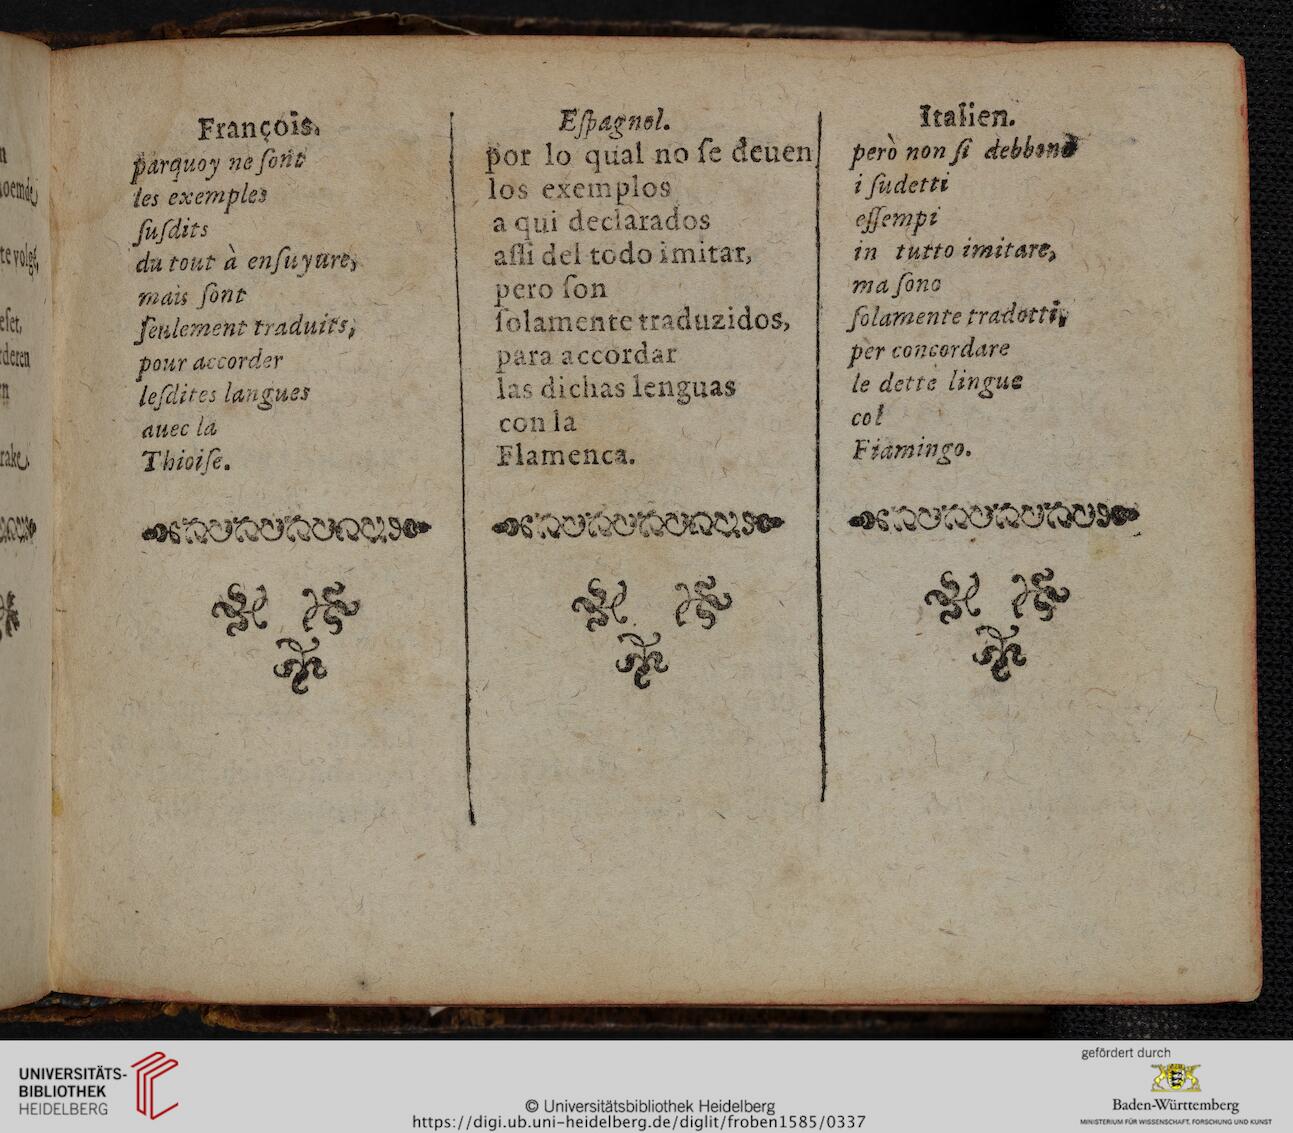 n
oemde
te volgt,
eſet,
rderen
n
rake.
François.
parquoy ne ſont
les exemples
ſuſdits
du tout à enſuyure,
mais ſont
ſeulement traduits,
pour accorder
leſdites langues
auec la
Thioiſe.
Eſpagnol.
por lo qual no ſe deuen
los exemplos
a qui declarados
aſſi del todo imitar,
pero ſon
ſolamente traduzidos,
para accordar
las dichas lenguas
con la
Flamenca.
Italien.
però non ſi debbono
i ſudetti
eſſempi
in tutto imitare,
ma ſono
ſolamente tradotti,
per concordare
le dette lingue
col
Fiamingo.
UNIVERSITÄTS-
BIBLIOTHEK
HEIDELBERG
© Universitätsbibliothek Heidelberg
https://digi.ub.uni-heidelberg.de/diglit/froben1585/0337
gefördert durch
Baden-Württemberg
MINISTERIUM FÜR WISSENSCHAFT, FORSCHUNG UND KUNST